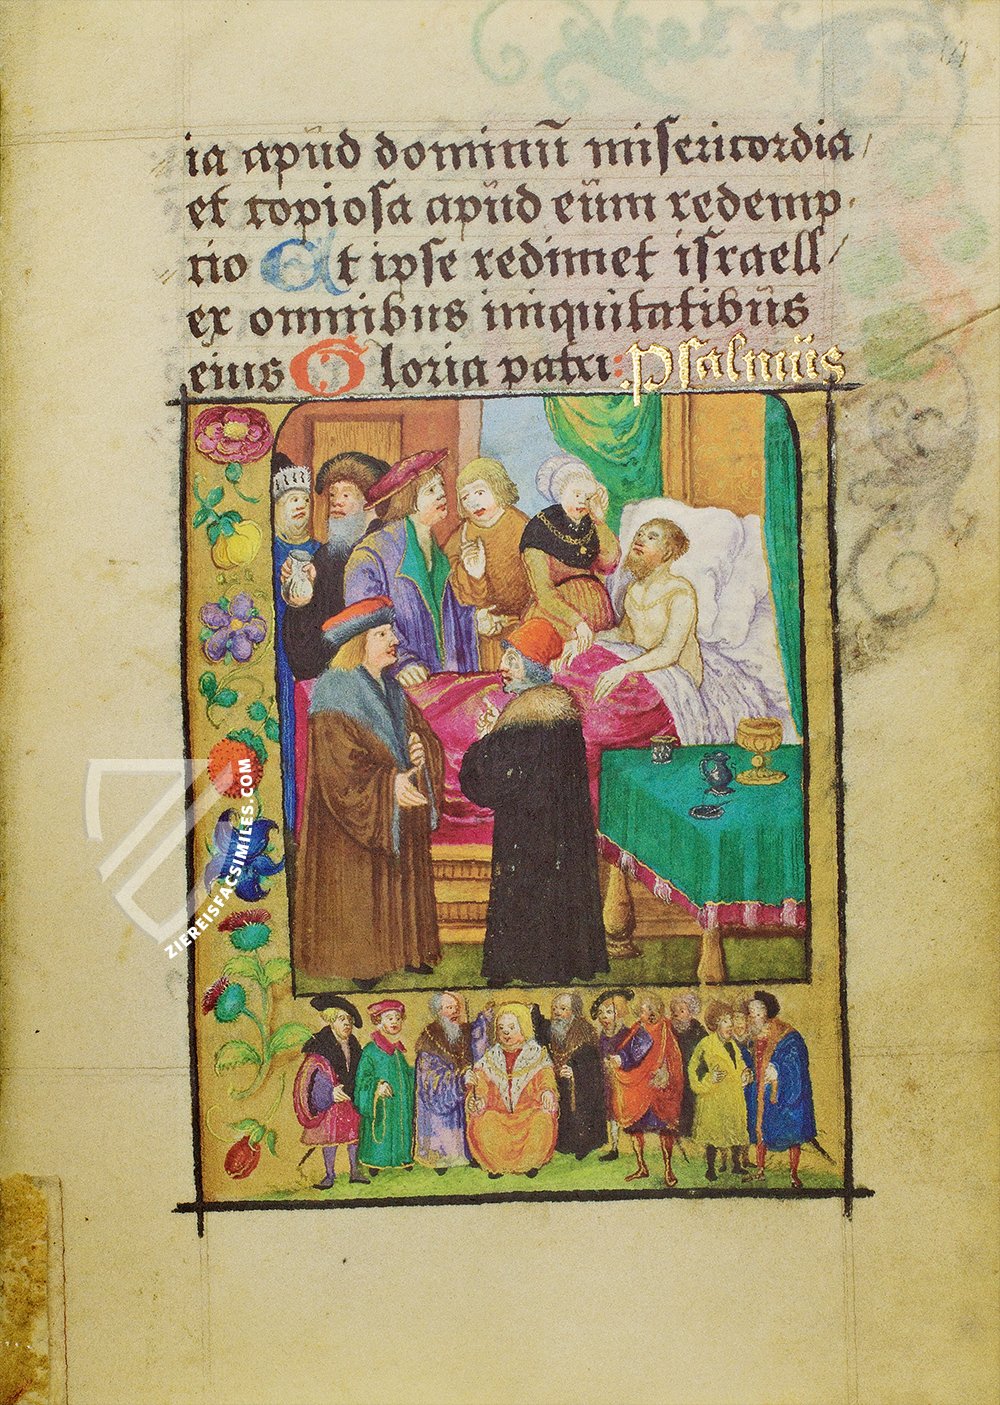 ia apŭd dominū misericordia
et copiosa apŭd eŭm redemp
tio Et ipse redimet israell
ex omnibus iniquitatibŭs
eius Gloria patri: Psalmŭs
ZIEREISFACSIMILES.COM